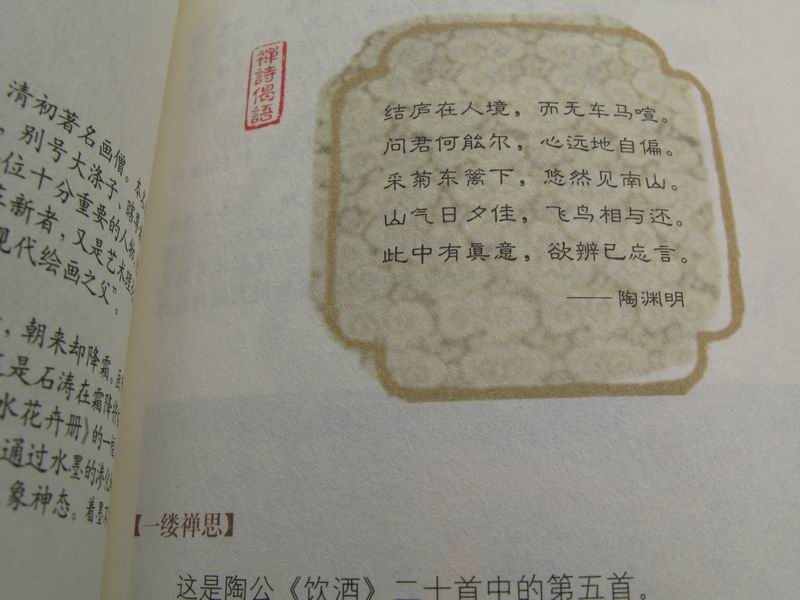 清初著名画僧。本名
，别号大涤子、瞎尊
位十分重要的人物，
革新者，又是艺术理
现代绘画之父”。
，朝来却降霜。画
正是石涛在霜降
水花卉册》的一帧
通过水墨的渗化
象神态。着墨不
禅詩偈語
结庐在人境，而无车马喧。
问君何能尔，心远地自偏。
采菊东篱下，悠然见南山。
山气日夕佳，飞鸟相与还。
此中有真意，欲辨已忘言。
——陶渊明
【一缕禅思】
这是陶公《饮酒》二十首中的第五首。